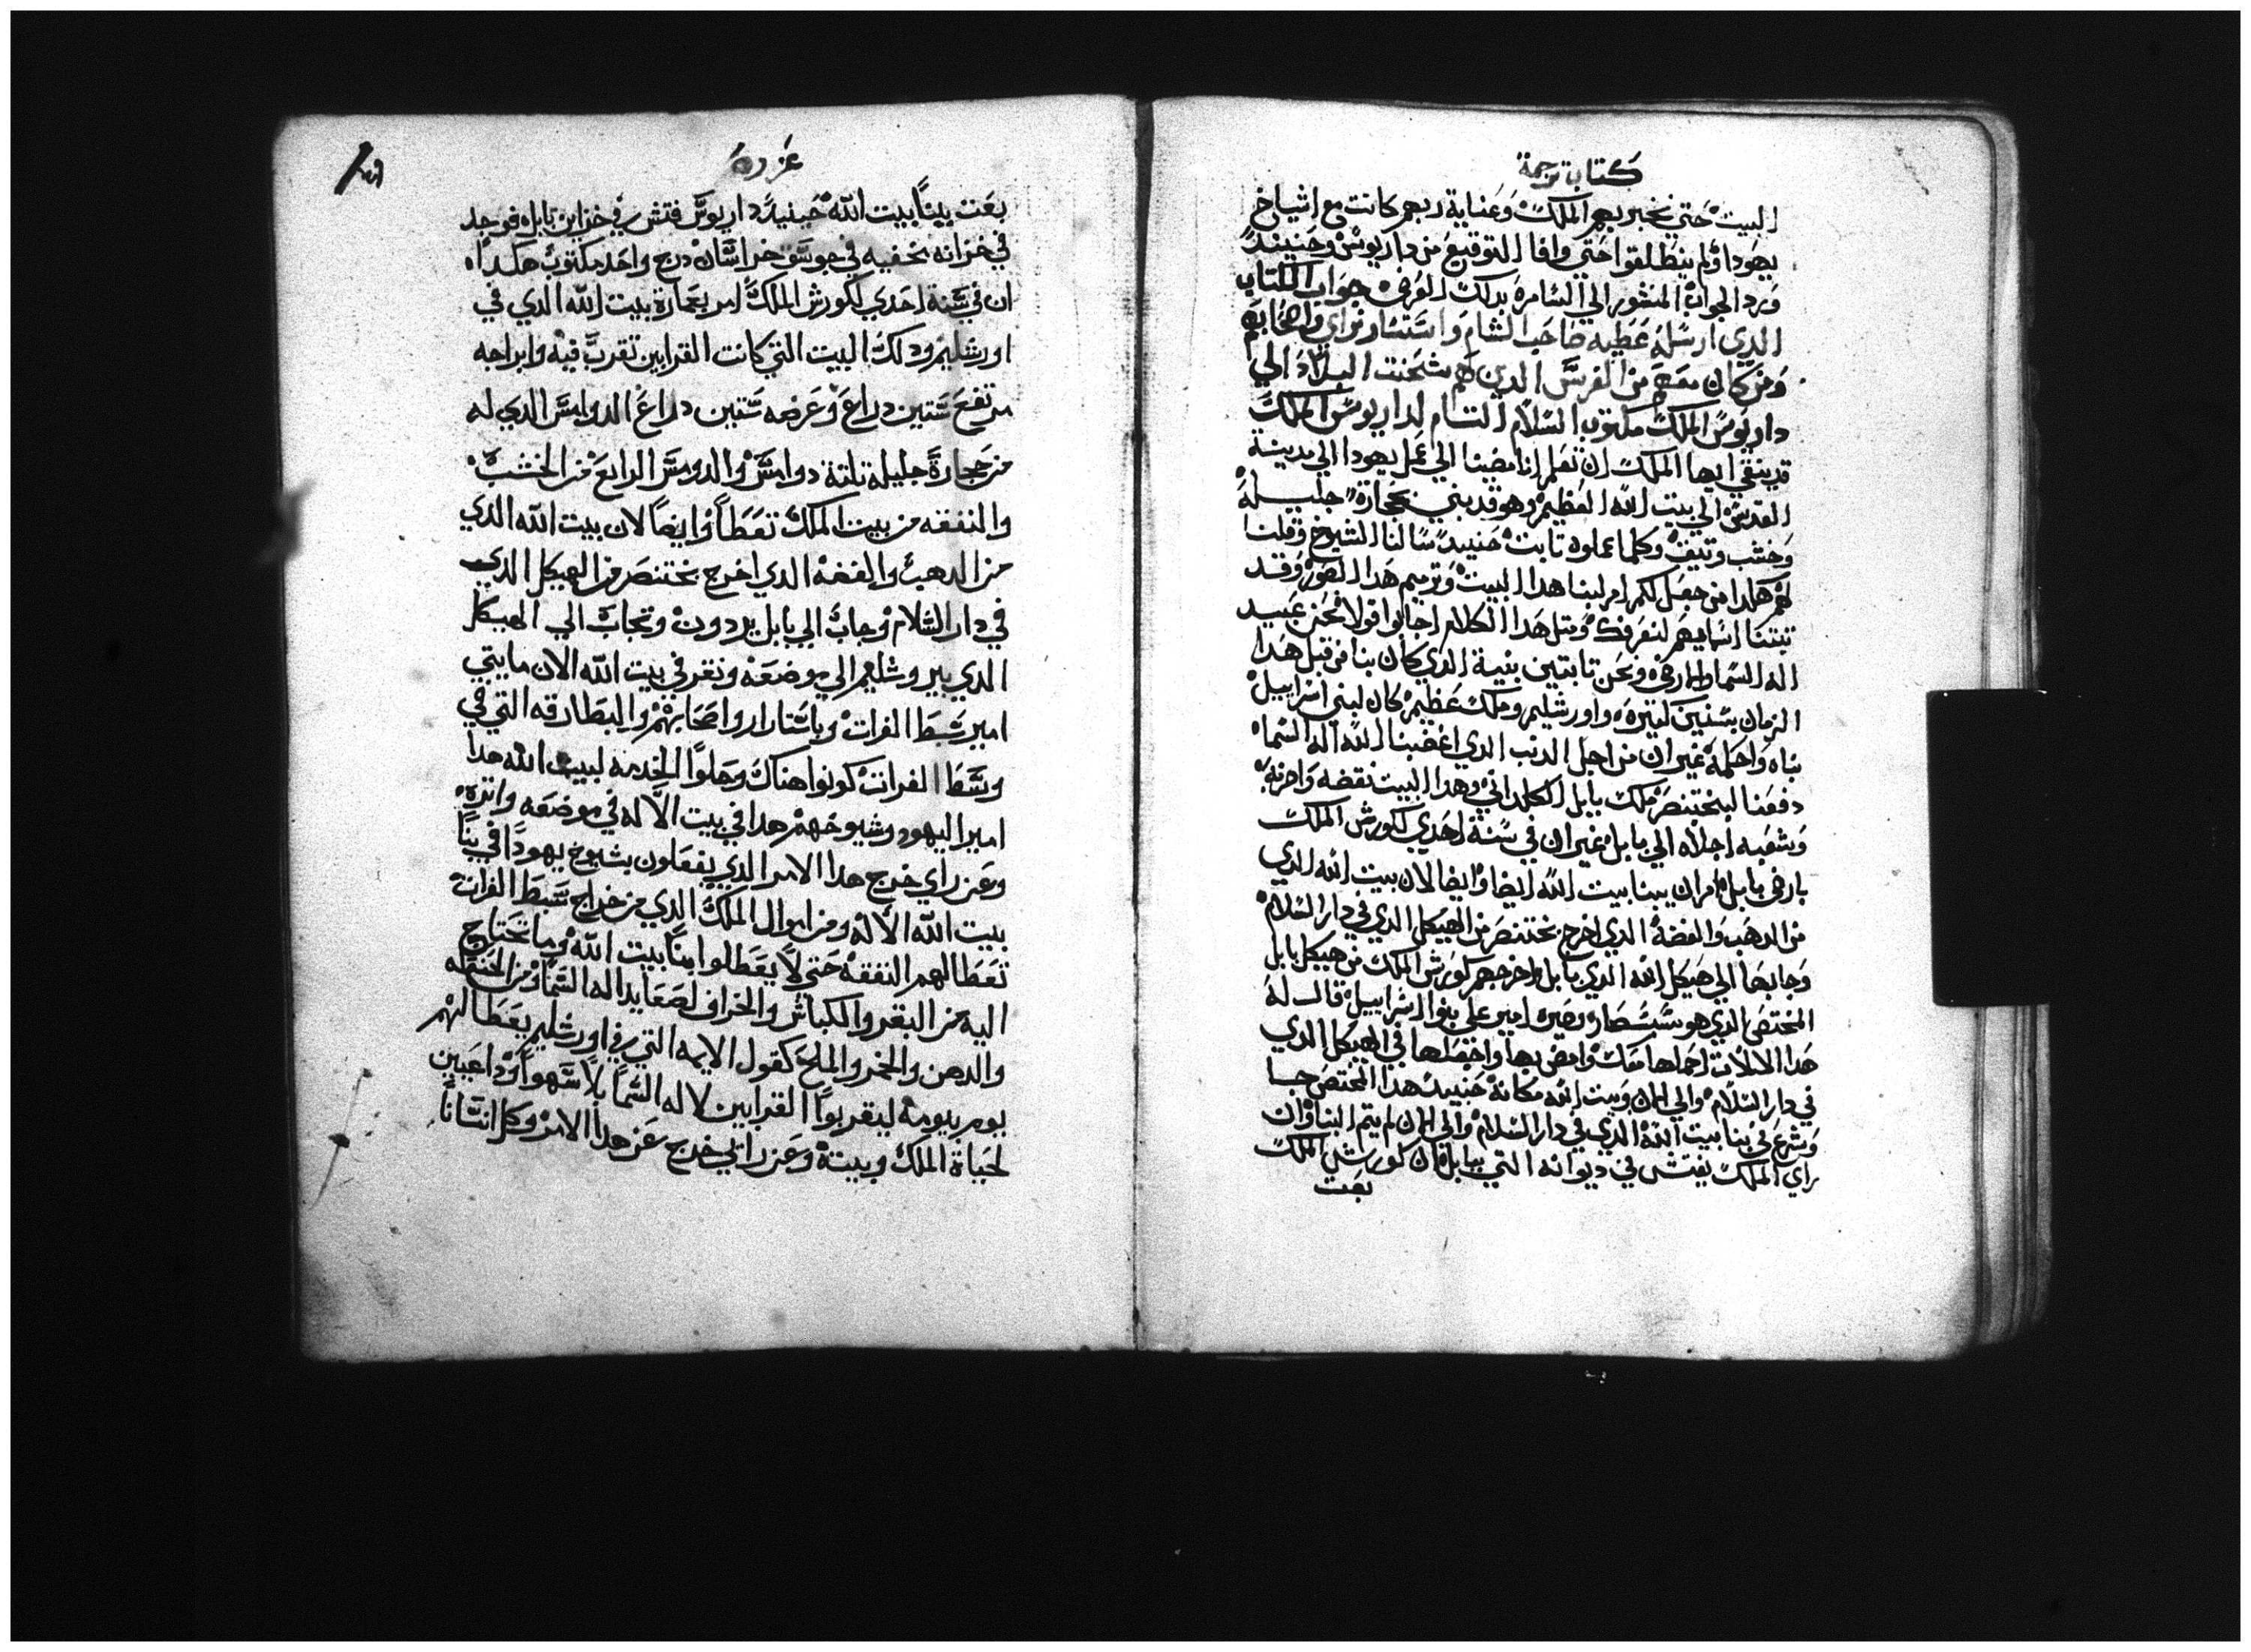 كتاب ترجمة
البيت حتي نخبر بهم الملك وعناية ربهم كانت مع اشياخ
يهودا ولم ينطلقوا حتي وافا التوقيع من داريوس وحينيد
ورد الجواب المنشور الي السامره بدلك العرض جواب الكتاب
الدي ارسله عظيه صاحب الشام واستشاوتراي واصحابهم
ومن كان معهم من الفرس الدين هم بشحنت البلاد الي
داريوس الملك مكتوب السلام التام لداريوس الملك
قد ينبغي ايها الملك ان تعلم اننا مضينا الي عمل يهودا الي مدينة
القدس الي بيت الله العظيم وهو قد بني بحجارة جليله
وخشب وتيق وكلما عملوه تابت حنيد سالنا الشيوخ وقلنا
لهم هكدا من جعل لكم امر لبنا هدا البيت وترميم هدا الصور وقد
تبتنا اسمايهم لنعرفك ومتل هدا الكلام اجابوا قولا نحن عبيد
اله السما والارض ونحن تابتين بنية الدي كان بنا من قبل هدا
الزمان بسنين كتيره واورشليم وملك عظيم كان لبني اسراييل
بناه واكمله غير ان من اجل الدنب الدي اغضبنا الله اله السماه
دفعنا لبختنصر ملك بابل الكلداني وهدا البيت نقضه واخربه
وشعبه اجلاه الي بابل غير ان في سنة احدي لكورش الملك
بارض بابل امر ان يبنا بيت الله ايضا وايضا لان بيت الله الدي
من الدهب والفضة الدي اخرج بختنصر من الهيكل الدي في دار السلام
وجابها الي هيكل الله الدي بابل واخرجهم كورش الملك من هيكل بابل
المختص الدي هو ششبصار وصيره امير علي بنو اسراييل قال له
هدا الالات احملها معك وامض بها واجعلها في الهيكل الدي
في دار السلام والي الان وبيت الله مكانة حنيد هدا المختص جا
وشرع في بنا بيت الله الدي في دار السلام والي الان لم يتم البنا وان
راي الملك يفتش في ديوانه التي ببابل ان كورش الملك
بعت
عزره
بعت بينا بيت الله حينيد داريوس فتش في خزاين بابل فوجد
في خزانه مخفيه في جوسق خراسان درج واحد مكتوب هكداه
ان في سنة احدي لكورش الملك امر بعمارة بيت الله الدي في
اورشليم ودلك البيت التي كانت القرابين تقرب فيه وابراجه
مرتفع ستين دراع وعرضه ستين دراع الدوامس الدي له
من حجارة جليله تلتة دوامس والدومس الرابع من الخشب
والنفقه من بيت الملك تعطا وايضا لان بيت الله الدي
من الدهب والفضة الدي اخرج بختنصر من الهيكل الدي
في دار السلام وجاب الي بابل يردون وتجاب الي الهيكل
الدي بيروشليم الي موضعه ونقر في بيت الله الان ما يتي
امير شط الفرات وباشتارار واصحابهم والبطارقه التي في
وسط الفرات كونوا هناك وخلوا الخدمه لبيت الله هدا
امير اليهود وشيوخهم هدا في بيت الاله في موضعه واتره
وعن راي خرج هدا الامر الدي يفعلون بشيوخ يهودا في بنا
بيت الله الاله ومن اموال الملك الدي من خراج شط الفرات
تعطا لهم النفقه حتي لا يعطلوا بنا بيت الله وما تحتاج
اليه من البقر والكباش والخراف لصعايد اله السما ومن الحنطه
والدهن والخمر والملح كقول الايمه التي في اورشليم يعطا لهم
يوم بيومه ليقربوا القرابين لاله السما بلا سهوا وداعيين
لحياة الملك وبيته وعن راي خرج عن هدا الامر وكل انسانا